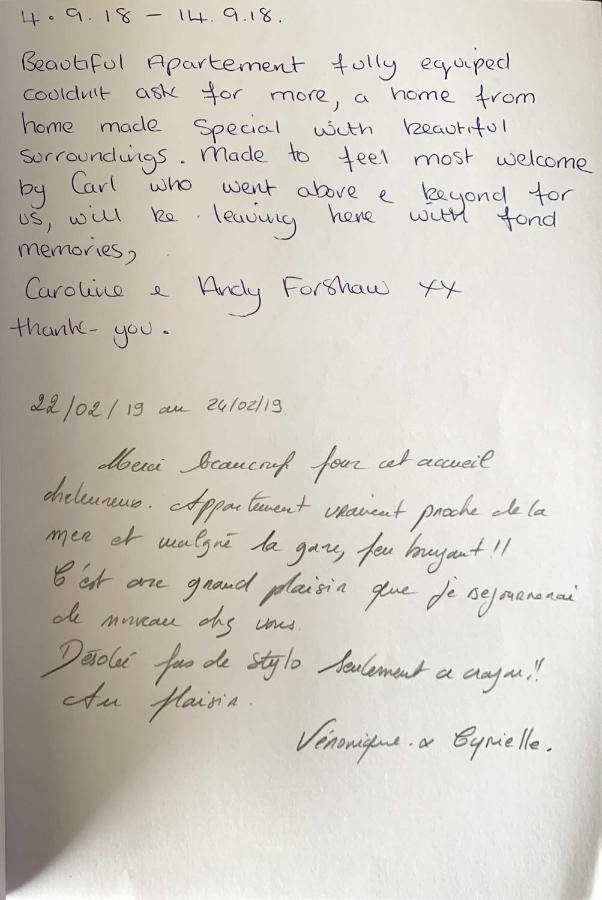 4.9.18 - 14.9.18.
Beautiful Apartement fully equiped
couldnt ask for more, a home from
home made special with beautiful
surroundings. Made to feel most welcome
by Carl who went above e beyond for
us, will be leaving here with fond
memories,
Caroline e Andy Forshaw xx
thank-you.
22/02/19 au 24/02/19
Merci beaucoup pour cet accueil
cheleureux. Appartement vraiment proche de la
mer et malgré la gare, peu bruyant!!
C'est avec grand plaisir que je sejournerai
de nouveau chez vous.
Désolée pas de stylo seulement ce crayon!!
Au plaisir.
Véronique. & Cyrielle.